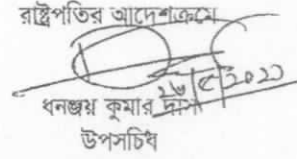 রাষ্ট্রপতির আদেশক্রমে
ধনঞ্জয় কুমার দাস
উপসচিব